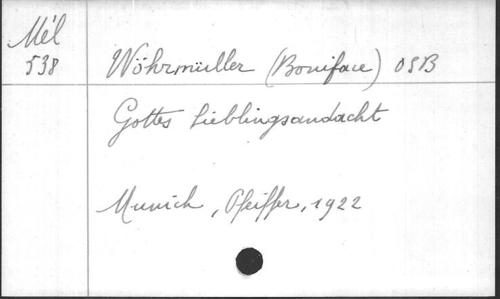 Mél
538
Wöhrmüller (Boniface) OSB
Gottes Lieblingsandacht
Munich, Pfeiffer, 1922